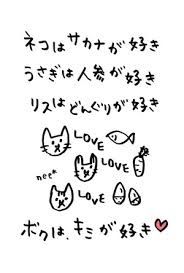 ネコはサカナが好き
うさぎは人参が好き
リスはどんぐりが好き
LOVE
LOVE
LOVE
ボクは、キミが好き